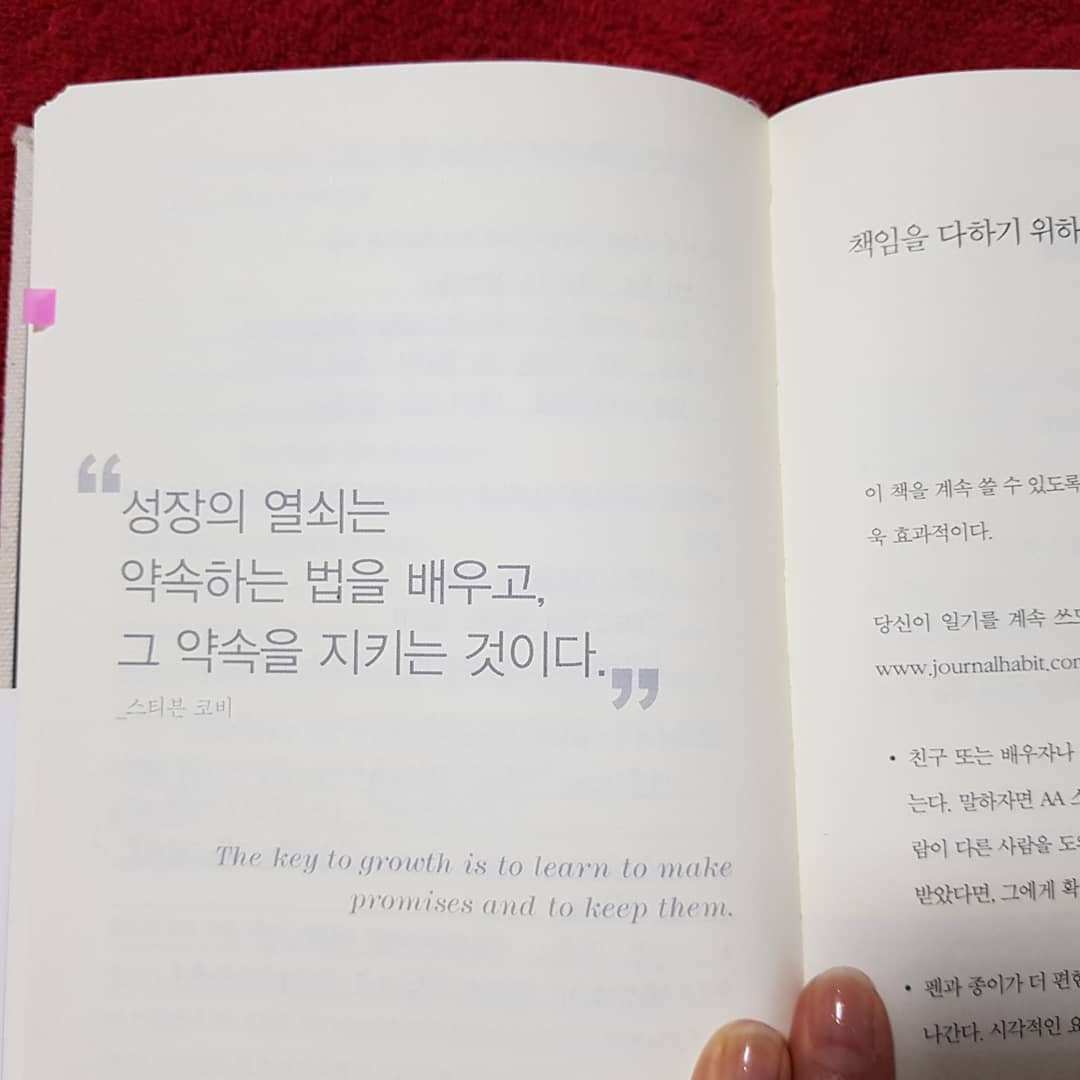 “성장의 열쇠는
약속하는 법을 배우고,
그 약속을 지키는 것이다.”
_스티븐 코비
The key to growth is to learn to make
promises and to keep them.
책임을 다하기 위하
이 책을 계속 쓸 수 있도록
욱 효과적이다.
당신이 일기를 계속 쓰
www.journalhabit.com
• 친구 또는 배우자나
는다. 말하자면 AA 스
람이 다른 사람을 도
받았다면, 그에게 확
• 펜과 종이가 더 편
나간다. 시각적인 요